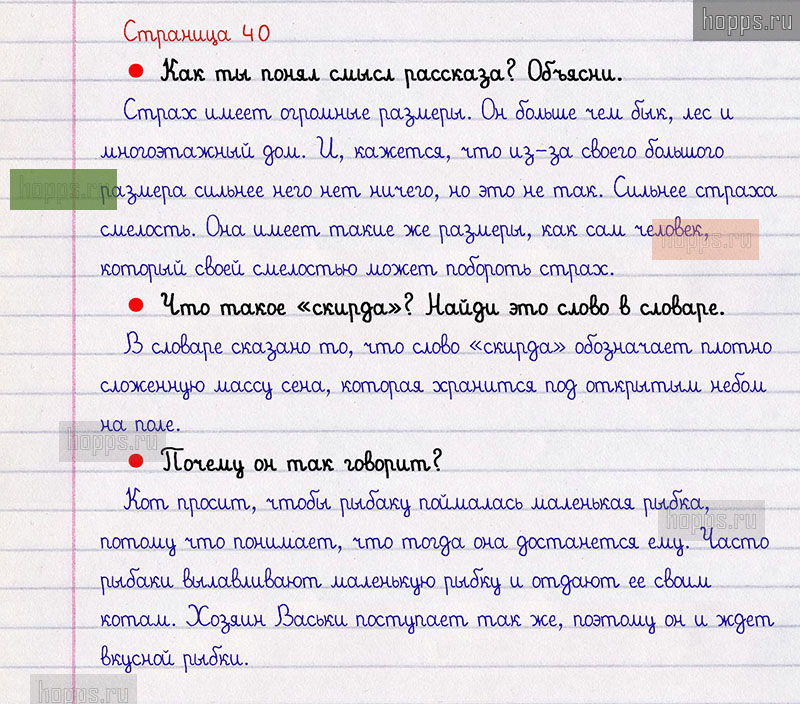 hopps.ru
Страница 40
Как ты понял смысл рассказа? Объясни.
Страх имеет огромные размеры. Он больше чем бык, лес и
многоэтажный дом. И, кажется, что из-за своего большого
hopps.ru
размера сильнее него нет ничего, но это не так. Сильнее страха
смелость. Она имеет такие же размеры, как сам человек,
hopps.ru
который своей смелостью может побороть страх.
Что такое «скирда»? Найди это слово в словаре.
В словаре сказано то, что слово «скирда» обозначает плотно
сложенную массу сена, которая хранится под открытым небом
на поле.
hopps.ru
Почему он так говорит?
Кот просит, чтобы рыбаку поймалась маленькая рыбка,
hopps.ru
потому что понимает, что тогда она достанется ему. Часто
рыбаки вылавливают маленькую рыбку и отдают ее своим
котам. Хозяин Васьки поступает так же, поэтому он и ждет
вкусной рыбки.
hopps.ru